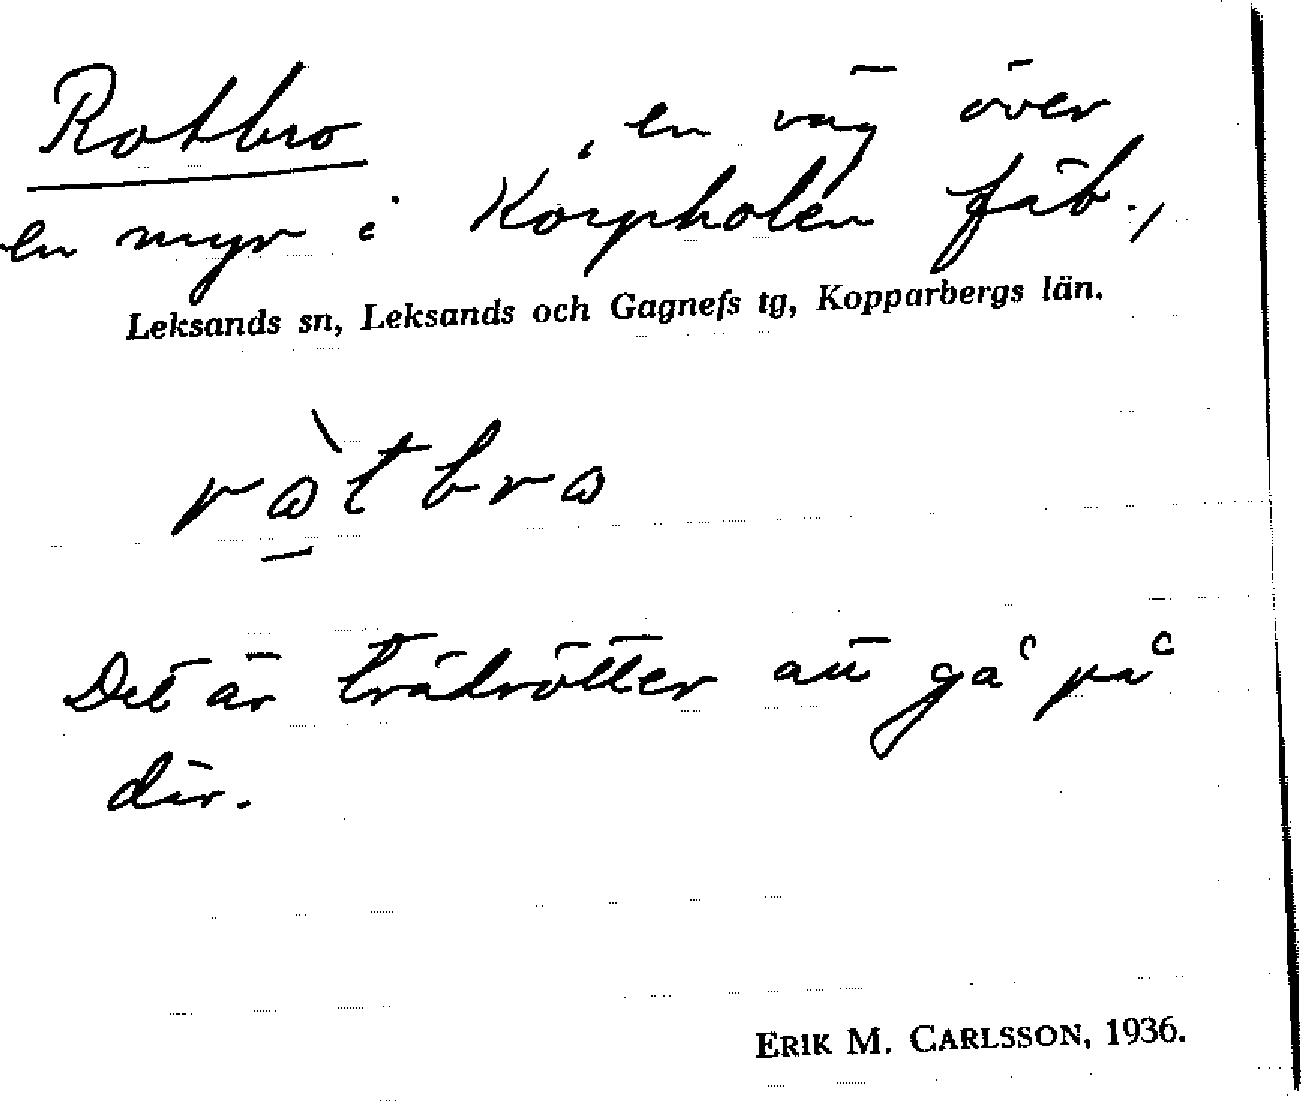 Rotbro , en väg över
en myr i Korpholen fäb.,
Leksands sn, Leksands och Gagnefs tg, Kopparbergs län.
ròtbro
Det är trädrötter att gå på
där.
ERIK M. CARLSSON, 1936.